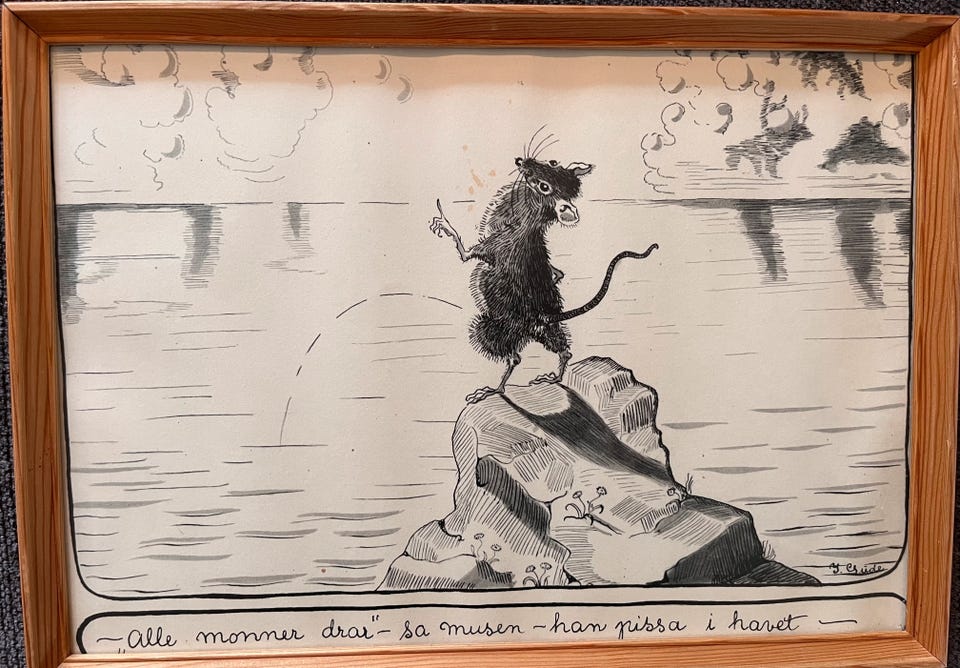 Gude
– „Alle monner drar" – sa musen – han pissa i havet –